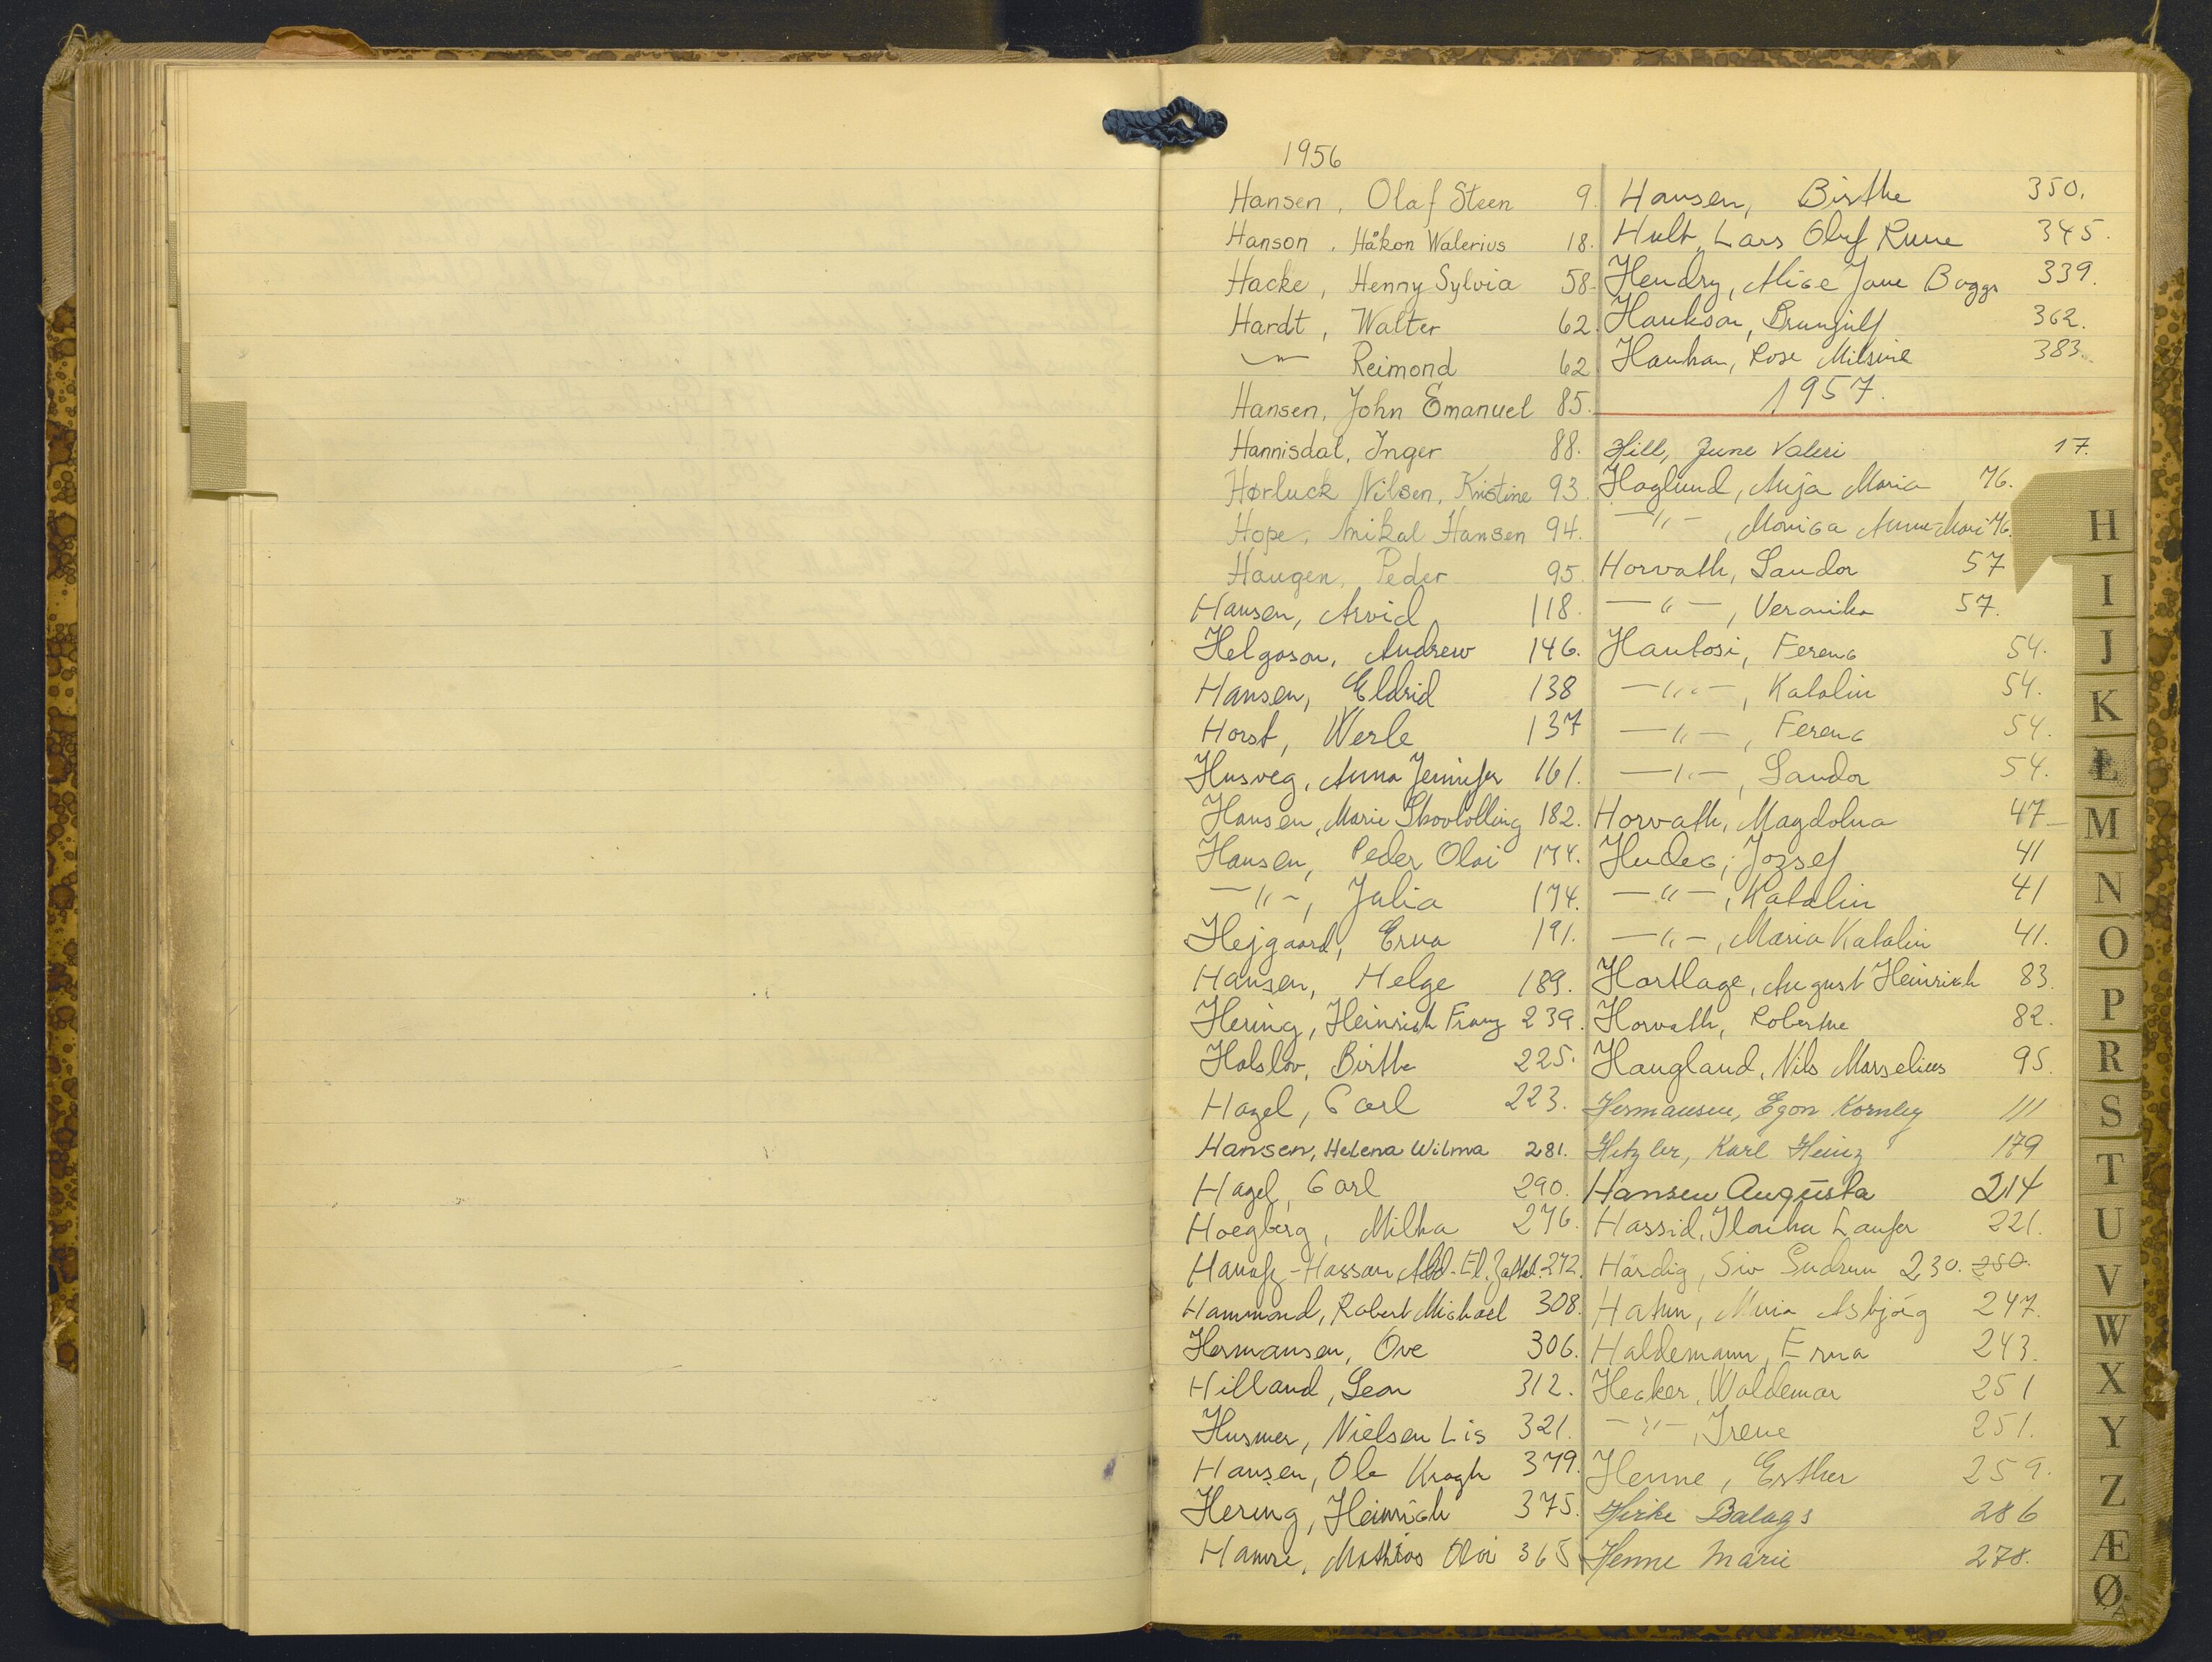 1956
Hansen, Olaf Steen 9.
Hanson, Håkon Walerius 18.
Hacke, Henny Sylvia 58.
Hardt, Walter 62.
—"— Reimond 62
Hansen, John Emanuel 85.
Hannisdal, Inger 88.
Hørluck Nilsen, Kristine 93.
Hope, Mikal Hansen 94.
Haugen, Peder 95.
Hansen, Arvid 118.
Helgason, Andrew 146.
Hansen, Eldrid 138
Horst, Werle 137
Husveg, Anna Jennifer 161.
Hansen, Marie 182.
Hansen, Peder Olai 174.
—"—, Julia 174.
Hejgaard, Erna 191.
Hansen, Helge 189.
Hering, Heinrich Franz 239.
Holslov, Birthe 225.
Hazel, Carl 223.
Hansen, Helena Wilma 281.
Hazel, Carl 290.
Hoegberg, Milka 276.
Hanafy-Hassan, Abd-El. 272.
Hammond, Robert Michael 308.
Hermansen, Ove 306.
Hilland, Leon 312.
Husmer, Nielsen Lis 321.
Hansen, Ole Kragh 379.
Hering, Heinrich 375.
Hamre, Mathias Olai 365
Hansen, Birthe 350.
Hult, Lars Olof Rune 345.
Hendry, Alice Jane Boggs 339.
Haukson, Brunjulf 362.
Rose 383.
1957.
Hill, June Valeri 17.
Hoglund, Anja Maria 76.
—"—, Monica Anne-Mari 76.
Horvath, Sandor 57
—"—, Veronika 57.
Hantosi, Ferenc 54.
—"—, Katalin 54.
—"—, Ferenc 54.
—"—, Sandor 54.
Horvath, Magdolna 47
Hudec, Jozsef 41
—"—, Katalin 41
—"—, Maria Katalin 41.
Hortlage, August Heinrich 83.
Horvath, Robertne 82.
Haugland, Nils Marselius 95.
Hermansen, Egon Kornley 111
Hetzler, Karl Heinz 179
Hansen Augusta 214
Hassid, Ilonka Laufer 221.
Härdig, Siv Gudrun 230. 250.
Hatun, Maria Asbjörg 247.
Haldemann, Erna 243.
Hecker, Waldemar 251
—"—, Irene 251.
Henne, Esther 259.
Hirke Balags 286
Henne Marie 278.
H
I
J
K
L
M
N
O
P
R
S
T
U
V
W
X
Y
Z
Æ
Ø
Å